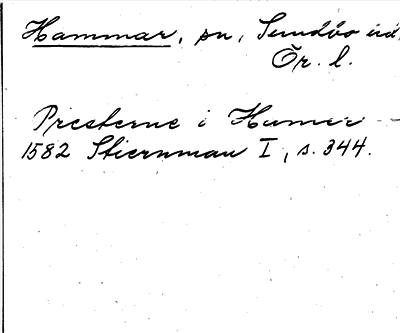 Hammar, sn, Sundbo hd.
Ör. l.
Presterne i Humer -
1582 Stiernman I, s. 344.